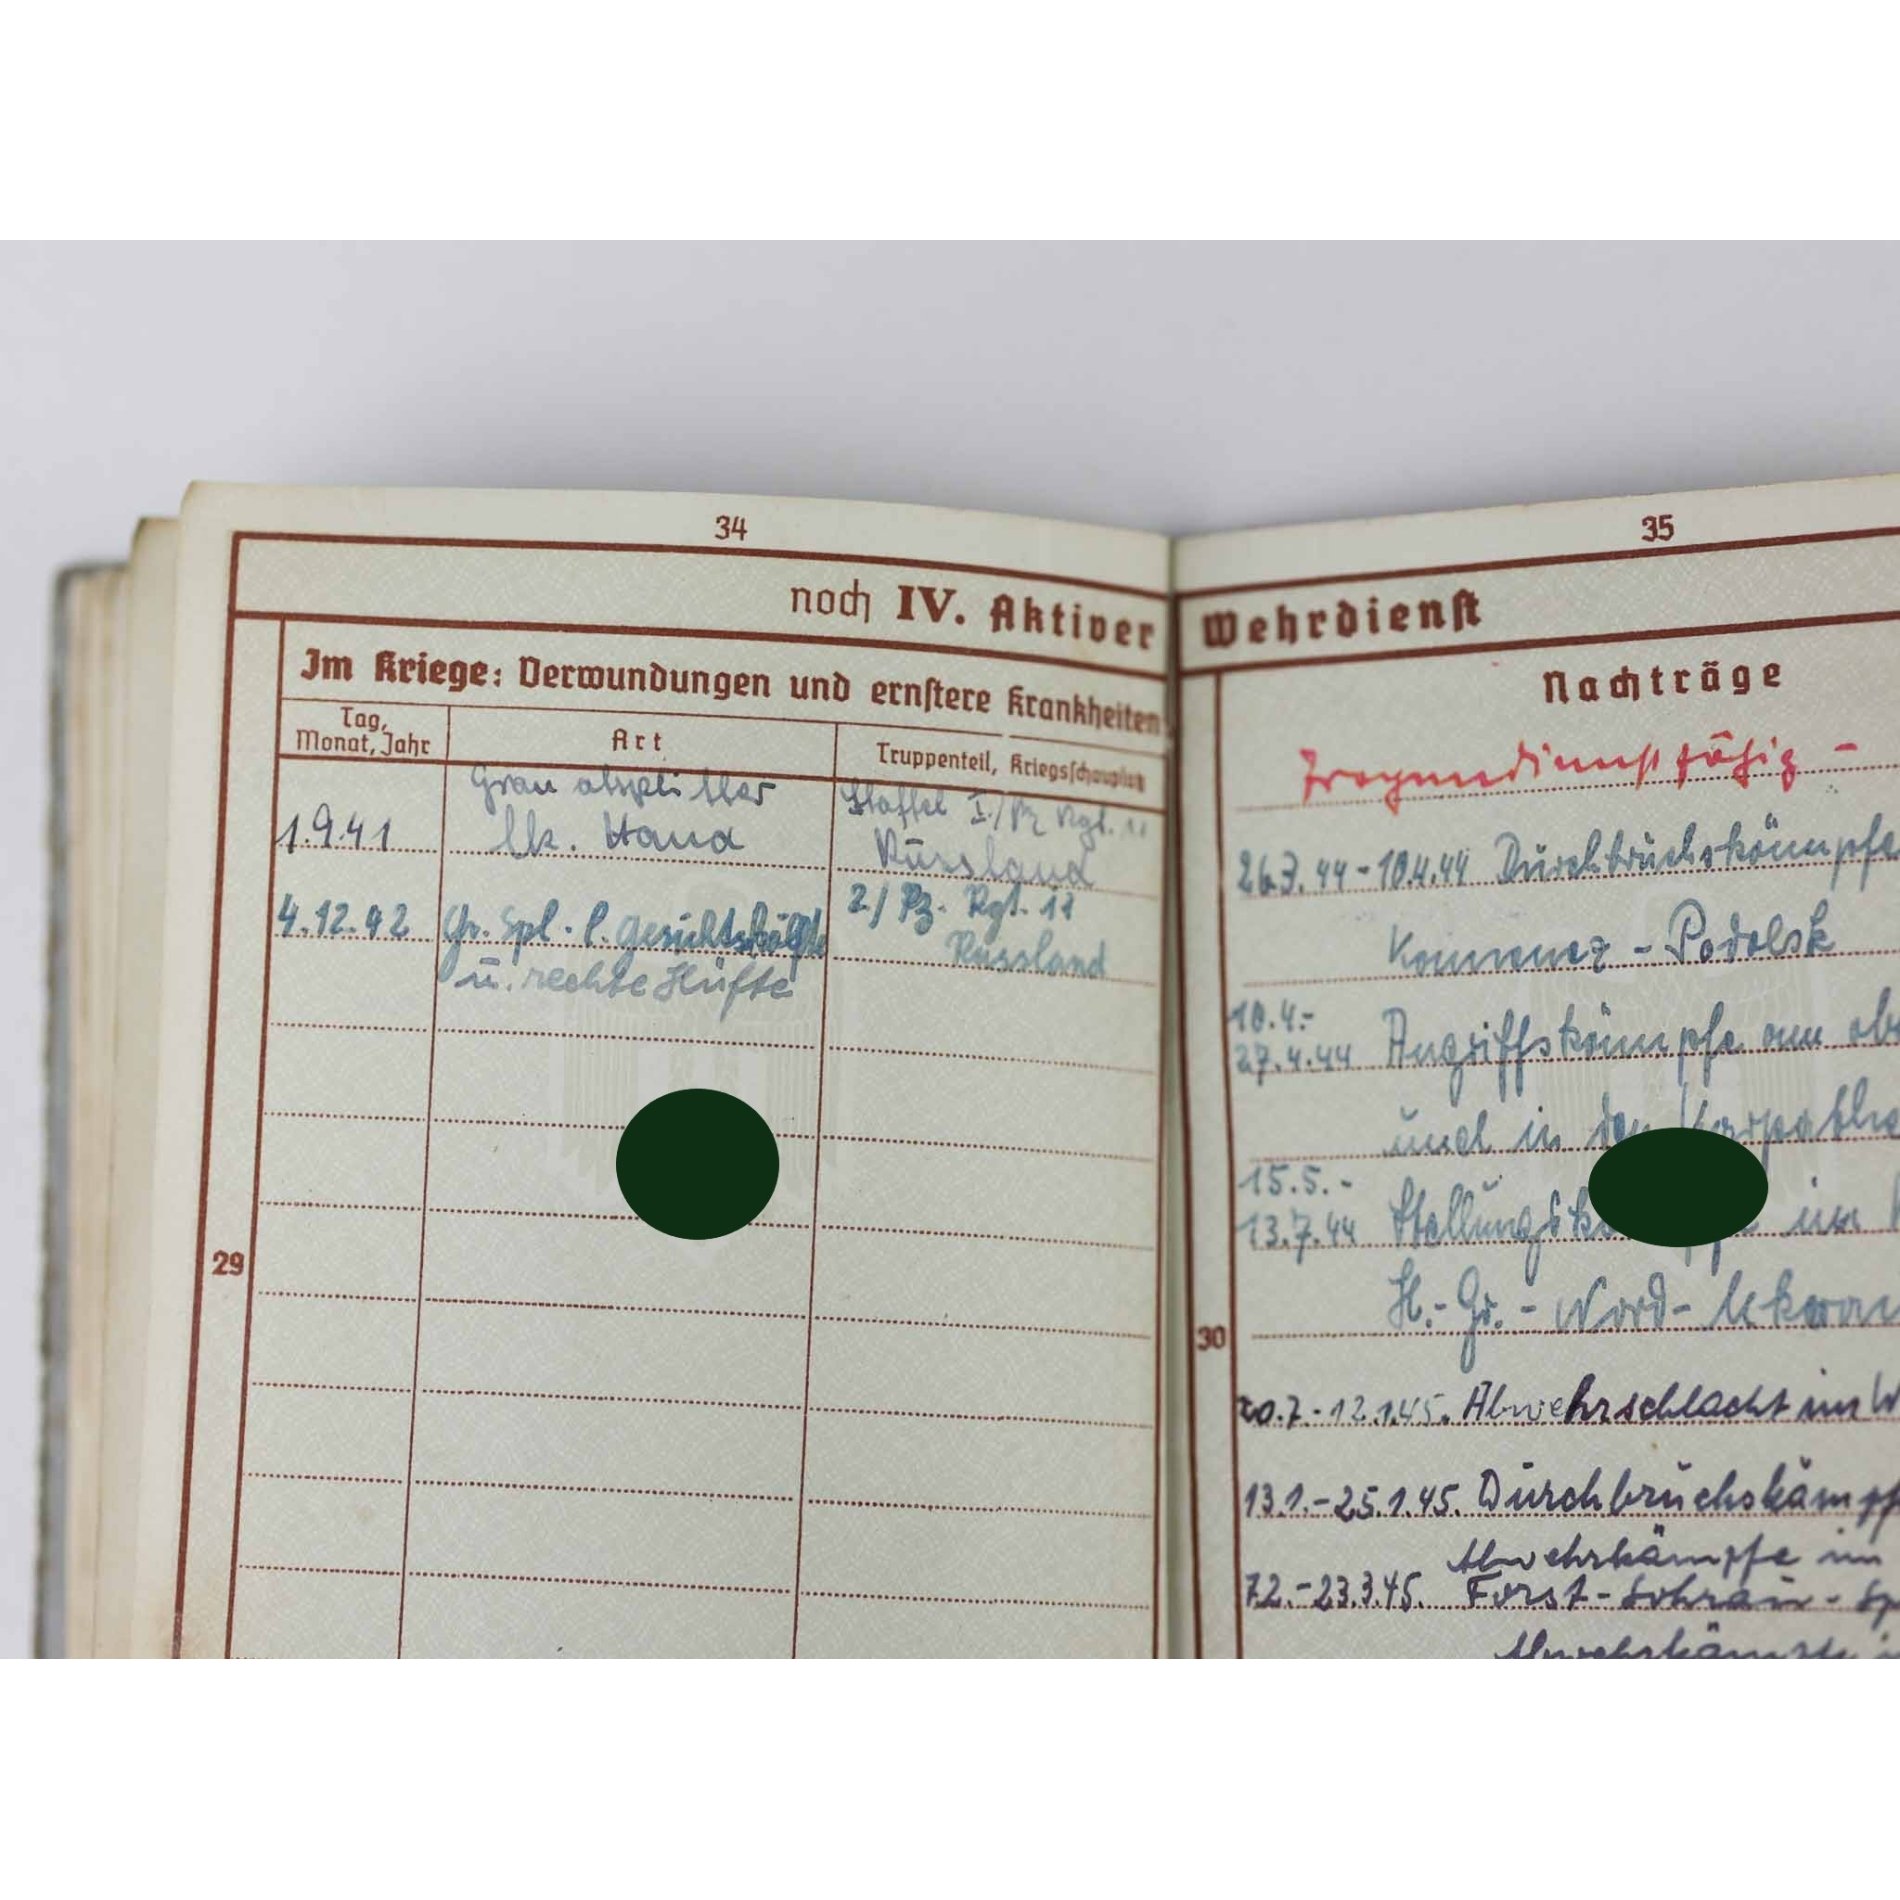 34
noch IV. Aktiver
Im Kriege: Verwundungen und ernstere Krankheiten
Tag,
Monat, Jahr
Art
Truppenteil, Kriegsschauplatz
Granatsplitter
1.9.41
lk. Hand
Staffel I./Pz Rgt. 11
Russland
4.12.42
Gr. Spl. l. Gesichtshälfte
u. rechte Hüfte
2./Pz. Rgt. 11
Russland
29
35
Wehrdienst
Nachträge
26.3.44-10.4.44 Durchbruchskämpfe
Kamenez - Podolsk
10.4.-
27.4.44 Angriffskämpfe am
und in den
15.5.-
13.7.44 im
H.-Gr.-Nord-
30
20.7.-12.1.45. Abwehrschlacht im W
13.1.-25.1.45. Durchbruchskämpf
Abwehrkämpfe im
7.2.-23.3.45. Forst-Sohrau-Sp